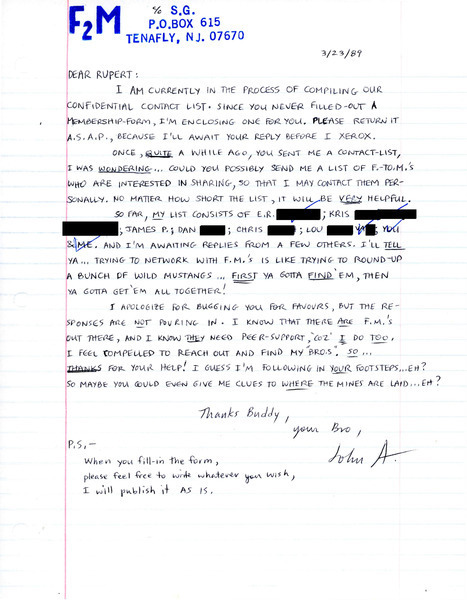 F2M
℅ S.G.
P.O.BOX 615
TENAFLY, NJ. 07670
3/23/89
DEAR RUPERT:
I AM CURRENTLY IN THE PROCESS OF COMPILING OUR
CONFIDENTIAL CONTACT LIST. SINCE YOU NEVER FILLED-OUT A
MEMBERSHIP-FORM, I'M ENCLOSING ONE FOR YOU. PLEASE RETURN IT
A.S.A.P., BECAUSE I'LL AWAIT YOUR REPLY BEFORE I XEROX.
ONCE, QUITE A WHILE AGO, YOU SENT ME A CONTACT-LIST,
I WAS WONDERING... COULD YOU POSSIBLY SEND ME A LIST OF F.-TO-M.'S
WHO ARE INTERESTED IN SHARING, SO THAT I MAY CONTACT THEM PER-
SONALLY. NO MATTER HOW SHORT THE LIST, IT WILL BE VERY HELPFUL.
SO FAR, MY LIST CONSISTS OF E.R. ; KRIS
; JAMES P.; DAN ; CHRIS ; LOU ; YOU
& ME. AND I'M AWAITING REPLIES FROM A FEW OTHERS. I'LL TELL
YA... TRYING TO NETWORK WITH F.M.'S IS LIKE TRYING TO ROUND-UP
A BUNCH OF WILD MUSTANGS... FIRST YA GOTTA FIND 'EM, THEN
YA GOTTA GET 'EM ALL TOGETHER!
I APOLOGIZE FOR BUGGING YOU FOR FAVOURS, BUT THE RE-
SPONSES ARE NOT POURING IN. I KNOW THAT THERE ARE F.M.'S
OUT THERE, AND I KNOW THEY NEED PEER-SUPPORT, 'COZ' I DO TOO.
I FEEL COMPELLED TO REACH OUT AND FIND MY "BRO'S". SO...
THANKS FOR YOUR HELP! I GUESS I'M FOLLOWING IN YOUR FOOTSTEPS...EH?
SO MAYBE YOU COULD EVEN GIVE ME CLUES TO WHERE THE MINES ARE LAID...EH?
Thanks Buddy,
your Bro,
John A.
P.S.,-
When you fill-in the form,
please feel free to write whatever you wish,
I will publish it AS IS.